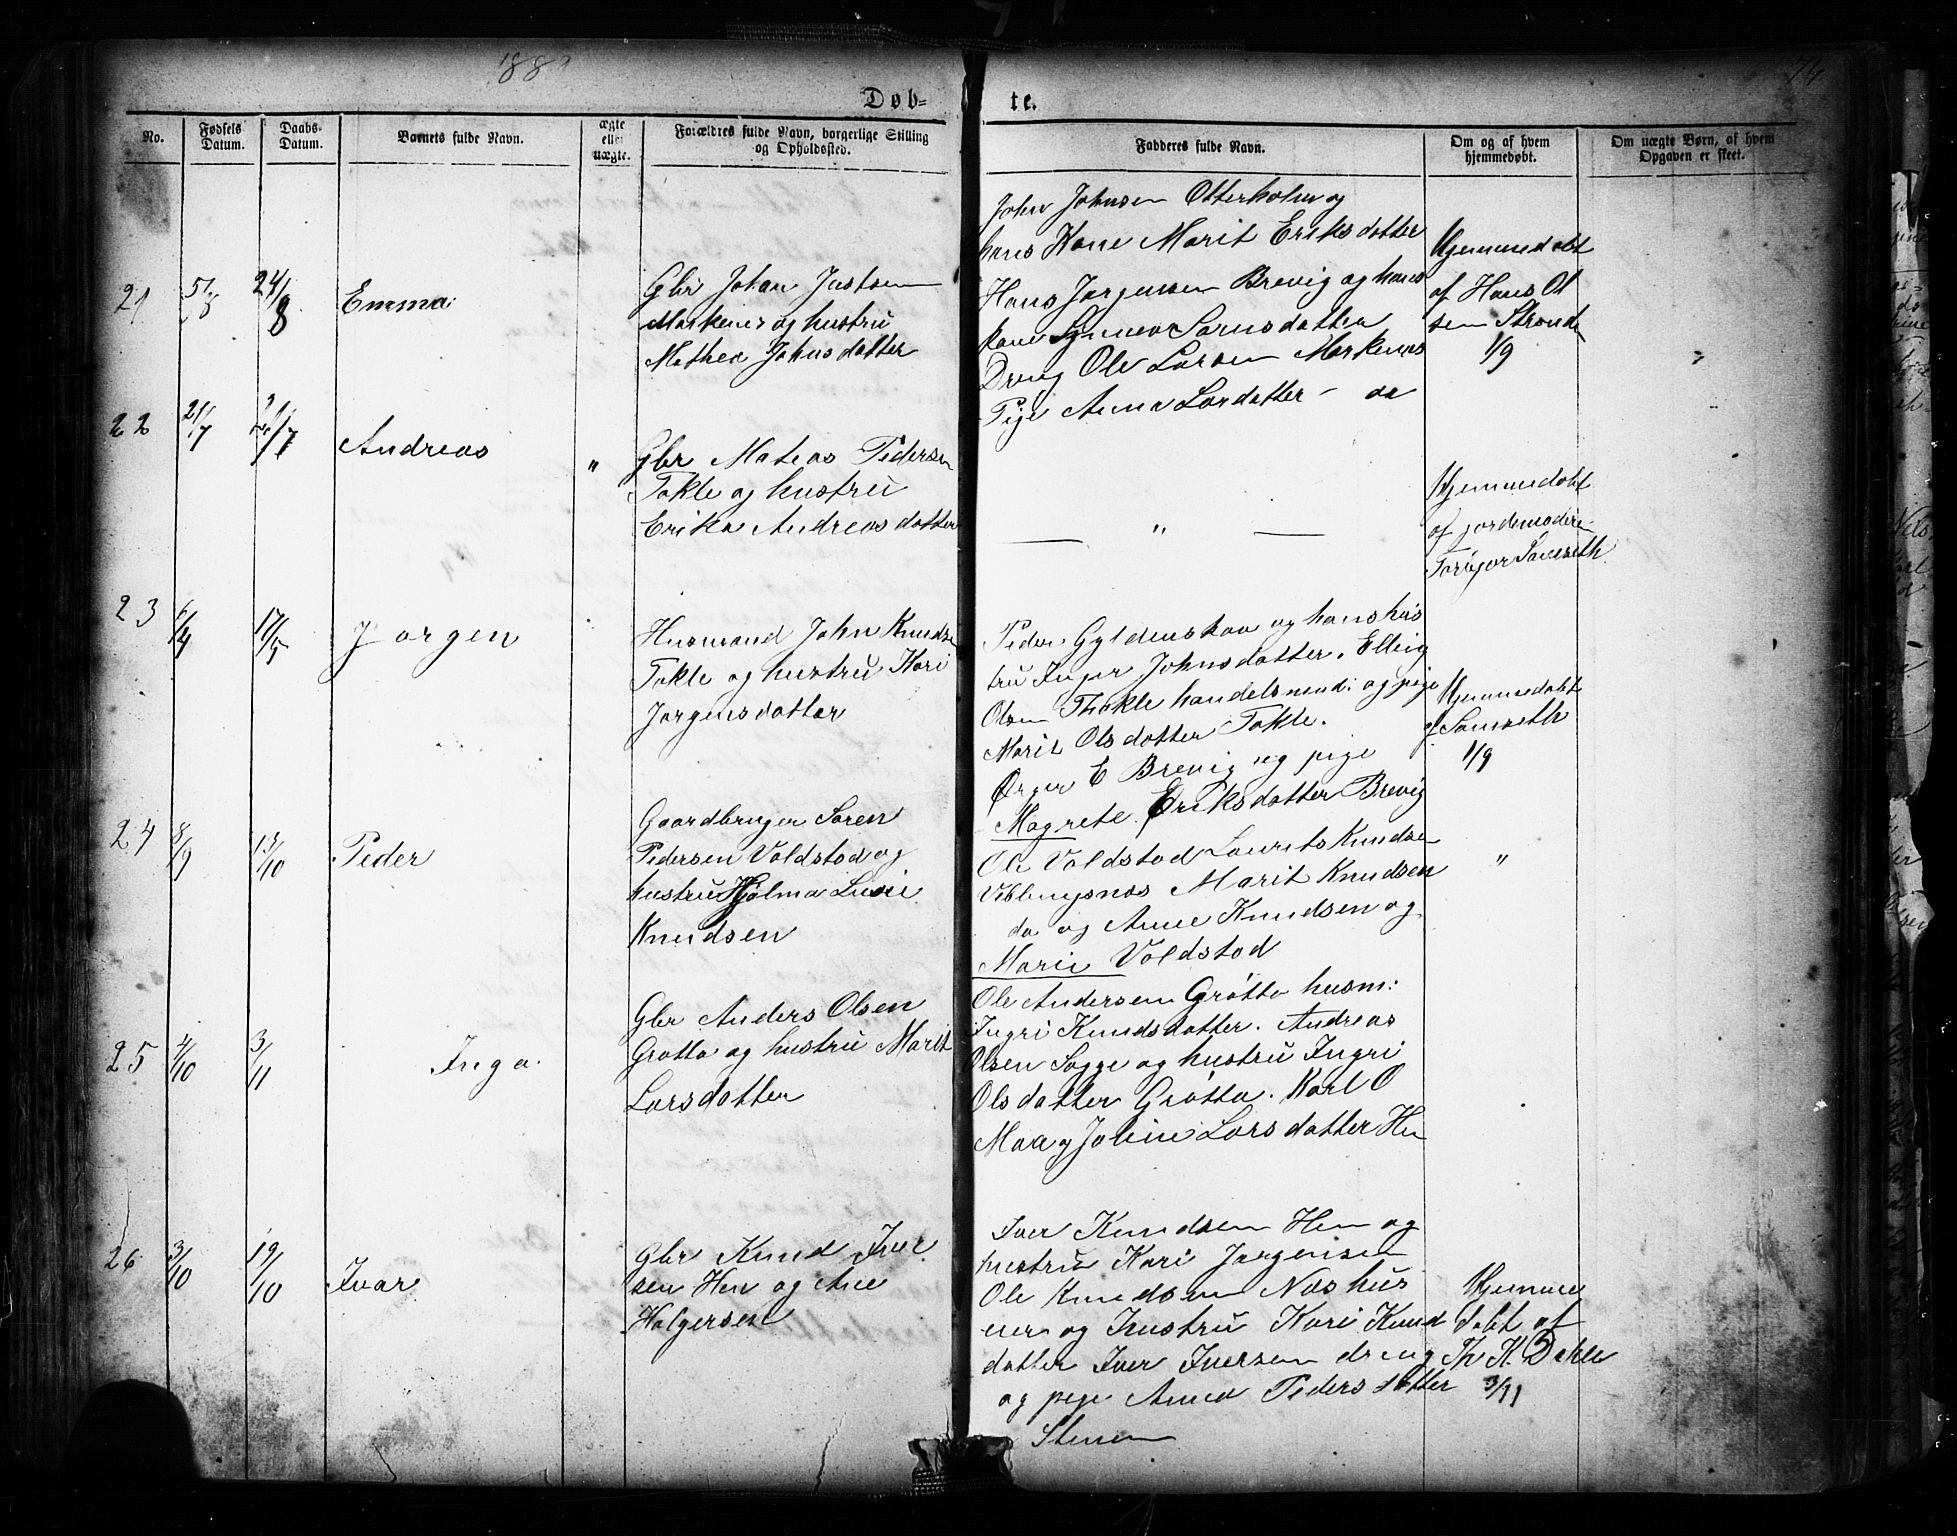 188
74
Døb-
te.
No.
Fødsels Datum.
Daabs-Datum.
Barnets fulde Navn.
ægte eller uægte.
Forældres fulde Navn, borgerlige Stilling og Opholdssted.
Fadderes fulde Navn.
Om og af hvem hjemmedøbt.
Om uægte Børn, af hvem Opgaven er skeet.
21
5/8
24/8
Emma
Gbr Johan Justsen
Markenes og hustru
Mathea Johnsdatter
John Johnsen Otterholm og
hans Kone Marit Eriksdatter
Hans Jørgensen Brevig og hans
kone Synnev Sørnsdatter
Dreng Ole Larsen Markenæs
Pige Anna Larsdatter - do
Hjemmedøbt
af Hans Ol
sen Strande
1/9
22
21/7
/7
Andreas
"
Gbr Mateas Pedersen
Tokle og hustru
Erika Andreasdatter
— " —
Hjemmedøbt
af jordemoderen
23
6/4
17/5
Jørgen
Husmand John Knudsen
Tokle og hustru Kari
Jørgensdatter
Peder Gyldenskaa og hans hus
tru Inger Johnsdatter. Elling
Olsen Thokle handelsmend: og pige
Marit Olsdatter Tokle.
E Brevig og pige
Magrete Eriksdatter Brevig
Hjemmedøbt
af
1/9
24
8/9
13/10
Peder
Gaardbruger Søren
Pedersen Voldstad og
hustru Hjalma Lusie
Knudsen
Ole Voldstad Laurits Knudsen
Vibbingsnæs Marit Knudsen
do og Anne Knudsen og
Marie Voldstad
"
25
4/10
3/11
Inga.
Gbr Anders Olsen
Grøtta og hustru Marit
Larsdatter
Ole Andersen Grøtta husm:
Ingri Knudsdatter. Andreas
Olsen Sogge og hustru Ingri
Olsdatter Grøtta. Karl O
Maa og Joline Larsdatter Hen
26
3/10
19/10
Ivar
Gbr Knud Iver
sen Hen og Ane
Holgersen
Iver Knudsen Hen og
hustru Kari Jørgensen
Ole Knudsen Næs hus
eier og hustru Kari Knud
datter Iver Iversen dreng
og pige Anna Pedersdatter
Stenen
Hjemme
døbt af
Th K. Dahle
3/11